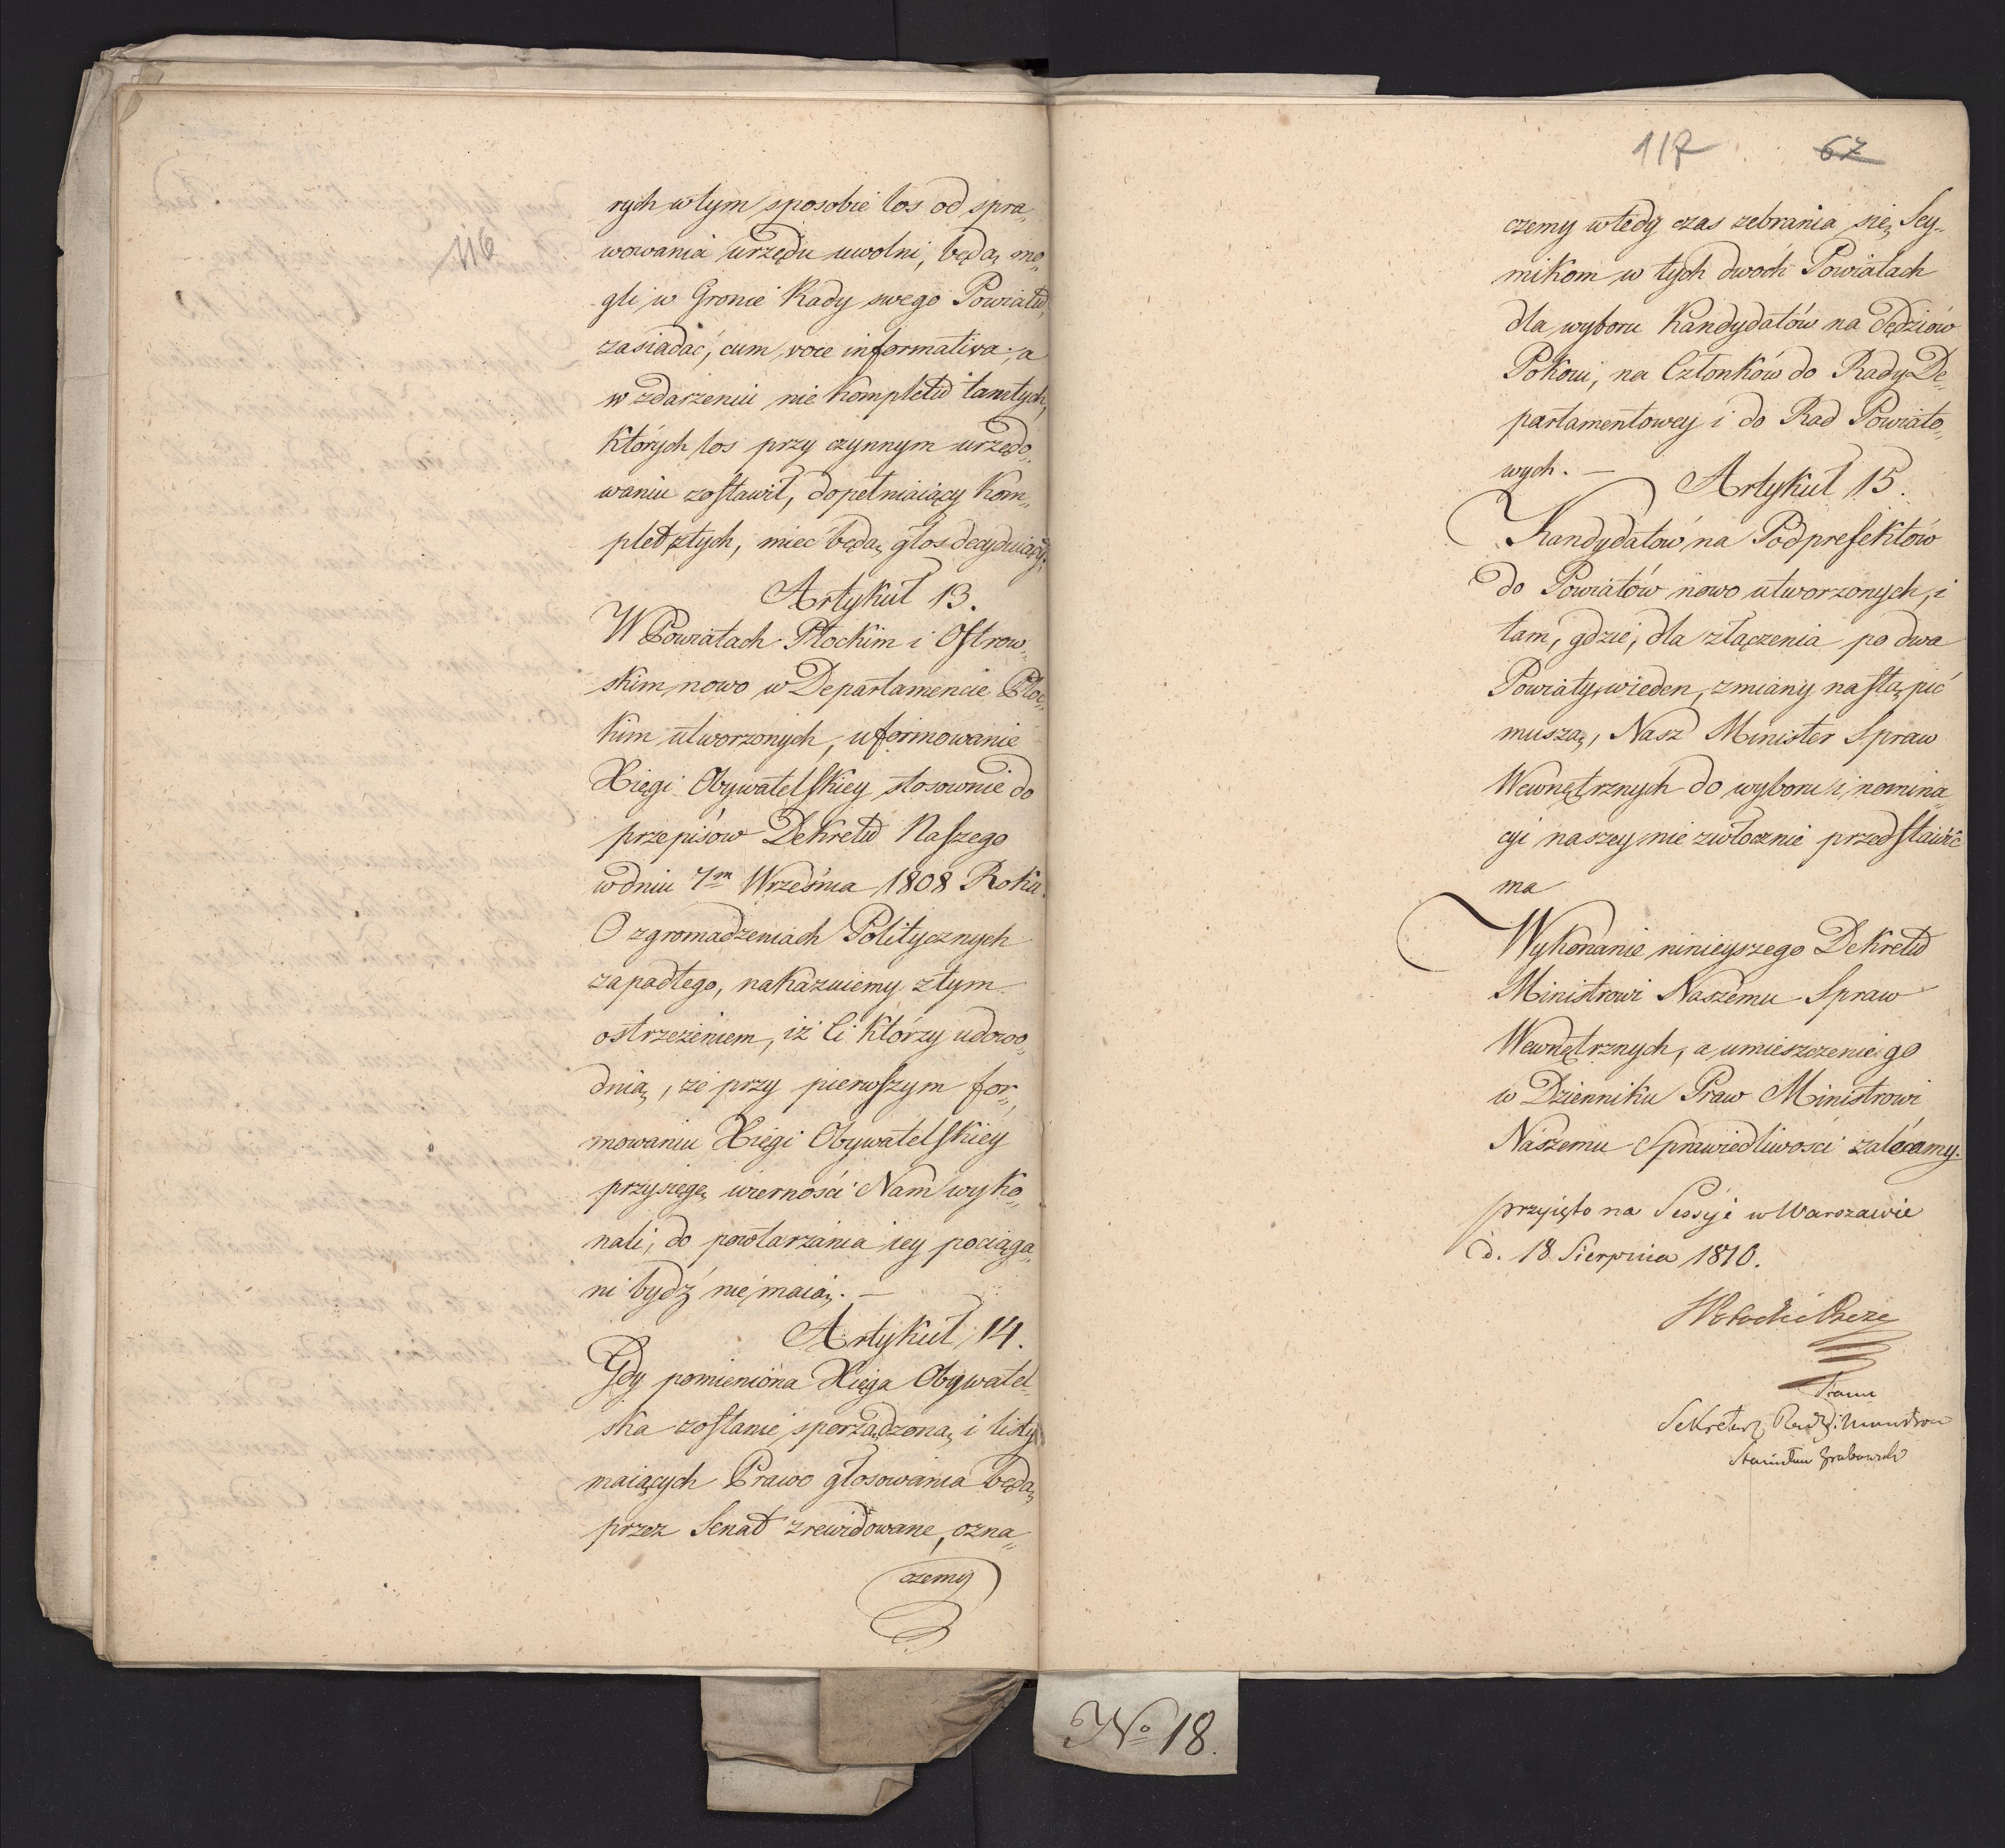 116
rych w tym sposobie los od spra„
wowania urzędu uwolni, będą mo„
gli w Gronie Rady swego Powiatu,
zasiadać, cum voce informativa; a
w zdarzeniu nie kompletu tamtych,
których los przy czynnym urzędo„
waniu zostawił, dopełniaiący kom„
plet z tych, mieć będą głos decyduiący.
Artykuł 13.
W Powiatach Płockim i Ostrow„
skim, nowo w Departamencie Płoc„
kim utworzonych, uformowanie
Xięgi Obywatelskiey stosownie do
przepisów Dekretu Naszego
w dniu 7m Września 1808 Roku
O zgromadzeniach Politycznych
zapadłego, nakazuiemy z tym
ostrzeżeniem, iż Ci którzy udowo„
dnią, że przy pierwszym for„
mowaniu Xięgi Obywatelskiey
przysięgę wierności Nam wyko„
nali, do powtarzania iey pociąga„
ni bydź nie maią. —
Artykuł 14.
Gdy pomieniona Xięga Obywatel„
ska zostanie sporządzoną, i listy
maiących Prawo głosowania będą
przez Senat zrewidowane, ozna„
czemy
117 67
czemy wtedy czas zebrania się Sey„
mikom w tych dwóch Powiatach
dla wyboru Kandydatów na Sędziów
Pokoiu, na Członków do Rady De„
partamentowey i do Rad Powiato„
wych. —
Artykuł 15.
Kandydatów na Podprefektów
do Powiatów nowo utworzonych, i
tam, gdzie, dla złączenia po dwa
Powiaty w ieden, zmiany nastąpić
muszą, Nasz Minister Spraw
Wewnętrznych do wyboru i nomina„
cyi naszey nie zwłocznie przedstawić
ma
Wykonanie ninieyszego Dekretu
Ministrowi Naszemu Spraw
Wewnętrznych, a umieszczenie go
w Dzienniku Praw Ministrowi
Naszemu Sprawiedliwości zalecamy.
przyięto na Sessyi w Warszawie
d. 18 Sierpnia 1810.
Sekretarz Rady Ministrów
Stanisław Grabowski
No 18.